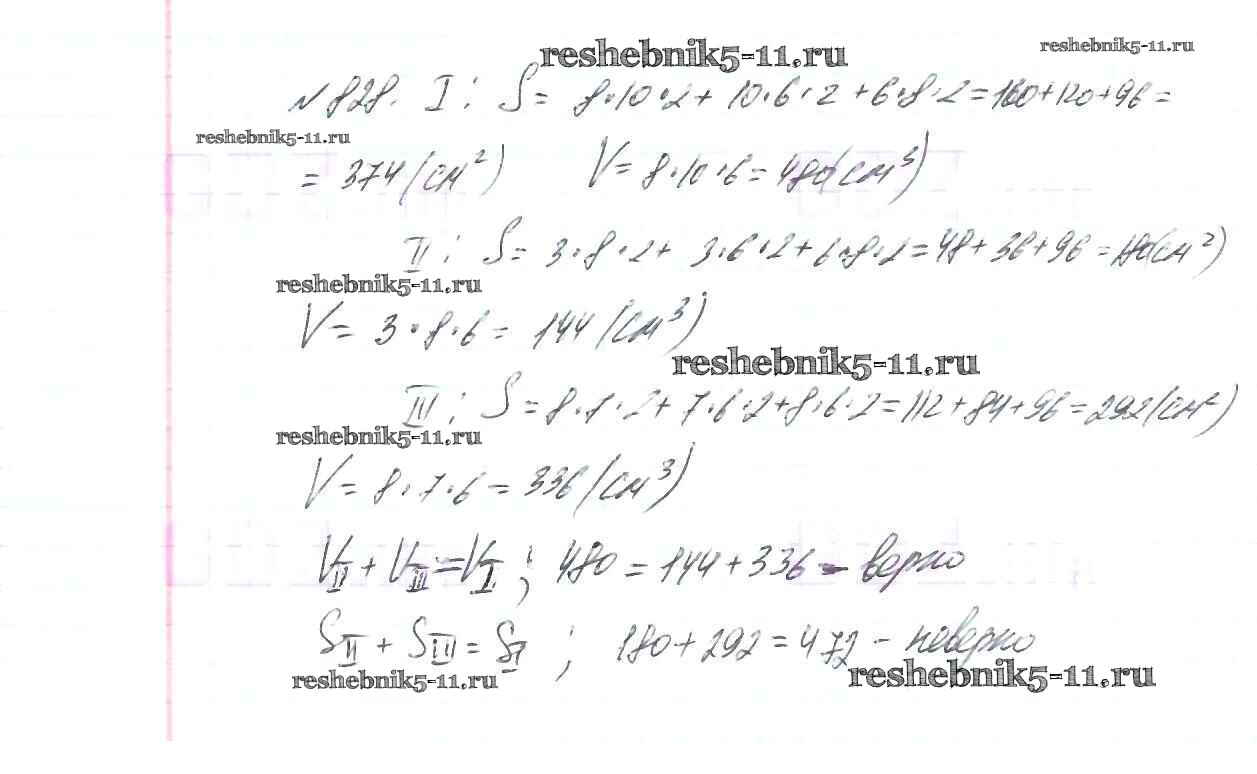 reshebnik5-11.ru
reshebnik5-11.ru
№828. I: S = 8·10·2 + 10·6·2 + 6·8·2 = 160 + 120 + 96 =
reshebnik5-11.ru
= 374 (см²) V = 8·10·6 = 480 (см³)
II: S = 3·8·2 + 3·6·2 + 6·8·2 = 48 + 36 + 96 = 180 (см²)
reshebnik5-11.ru
V = 3·8·6 = 144 (см³)
reshebnik5-11.ru
III: S = 8·7·2 + 7·6·2 + 8·6·2 = 112 + 84 + 96 = 292 (см²)
reshebnik5-11.ru
V = 8·7·6 = 336 (см³)
V II + V III = V I; 480 = 144 + 336 – верно
S II + S III = S I; 180 + 292 = 472 – неверно
reshebnik5-11.ru
reshebnik5-11.ru